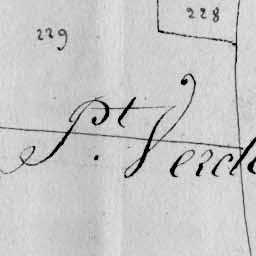 228
229
Pt. Verd